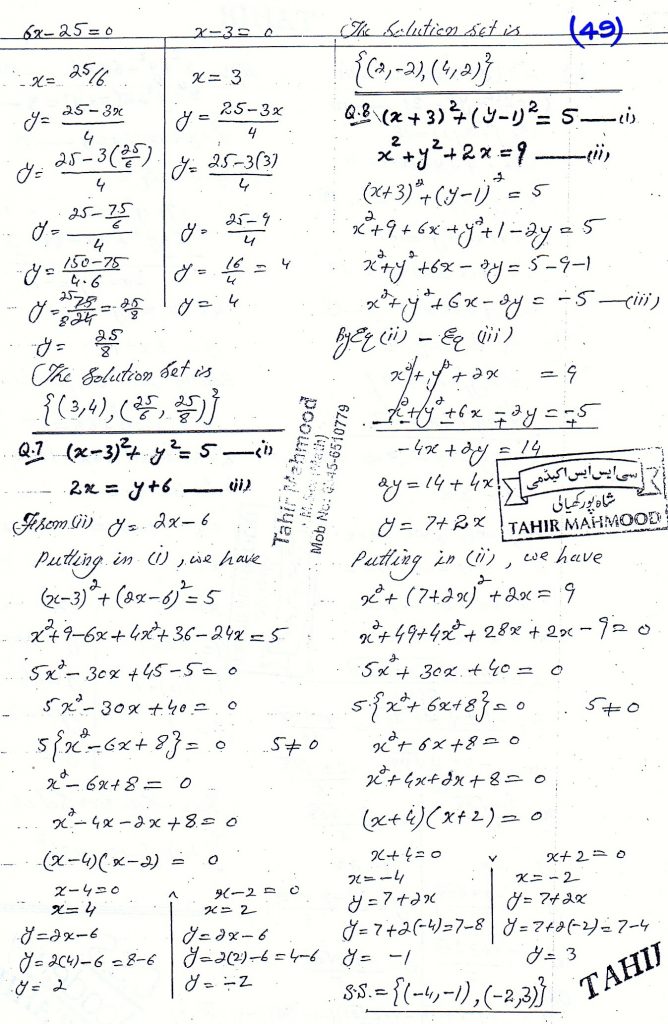 (49)
6x-25=0
x-3=0
x= 25/6
x= 3
y= 25-3x / 4
y= 25-3x / 4
y= 25-3(25/6) / 4
y= 25-3(3) / 4
y= 25-75/6 / 4
y= 25-9 / 4
y= 150-75 / 4.6
y= 16/4 = 4
y= 75/24 = 25/8
y= 4
y= 25/8
The Solution Set is
{(3,4), (25/6, 25/8)}
Q.7 (x-3)²+ y²= 5 —(i)
2x = y+6 —(ii)
From (ii) y= 2x-6
Putting in (i), we have
(x-3)²+(2x-6)²=5
x²+9-6x+4x²+36-24x=5
5x²-30x+45-5=0
5x²-30x+40=0
5{x²-6x+8}=0 5≠0
x²-6x+8=0
x²-4x-2x+8=0
(x-4)(x-2)=0
x-4=0 ^ x-2=0
x=4
x=2
y=2x-6
y=2x-6
y=2(4)-6=8-6
y=2(2)-6=4-6
y=2
y=-2
The Solution Set is
{(2,-2),(4,2)}
Q.8 (x+3)²+(y-1)²=5 —(i)
x²+y²+2x=9 —(ii)
(x+3)²+(y-1)²=5
x²+9+6x+y²+1-2y=5
x²+y²+6x-2y=5-9-1
x²+y²+6x-2y=-5 —(iii)
By Eq (ii) - Eq (iii)
x²+y²+2x =9
-x²+y²+6x-2y=-5
-4x+2y=14
2y=14+4x
y=7+2x
Putting in (ii), we have
x²+(7+2x)²+2x=9
x²+49+4x²+28x+2x-9=0
5x²+30x+40=0
5{x²+6x+8}=0 5≠0
x²+6x+8=0
x²+4x+2x+8=0
(x+4)(x+2)=0
x+4=0 v x+2=0
x=-4
x=-2
y=7+2x
y=7+2x
y=7+2(-4)=7-8
y=7+2(-2)=7-4
y=-1
y=3
S.S.={(-4,-1),(-2,3)}
Tahir Mehmood
Mob No:
45-6510779
سی ایس ایس اکیڈمی
شاہ پور کھیالی
TAHIR MAHMOOD